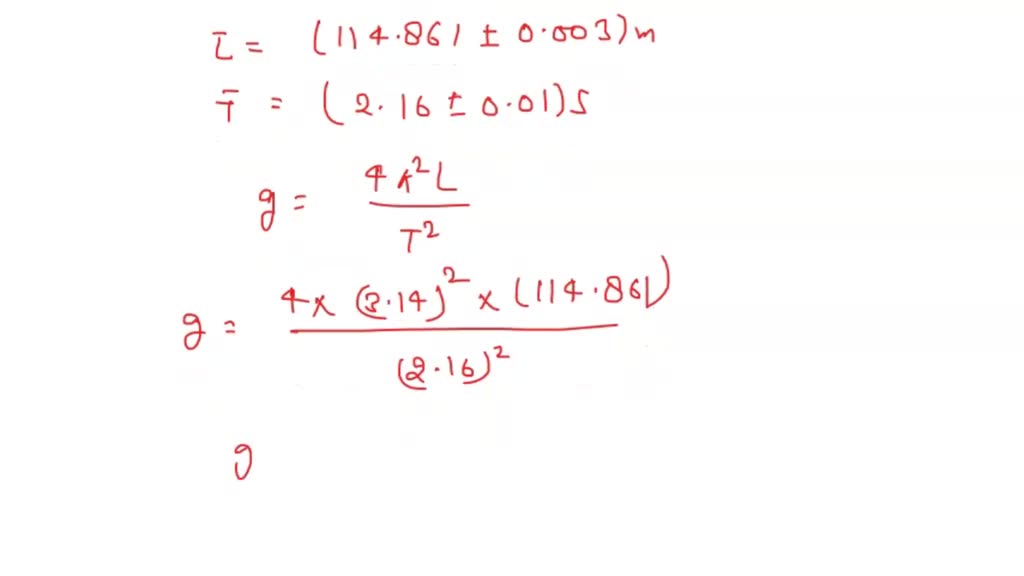 L̄ = (114.861 ± 0.003)m
T̄ = (2.16 ± 0.01)S
g = 4π²L / T²
g = 4 × (3.14)² × (114.861) / (2.16)²
g